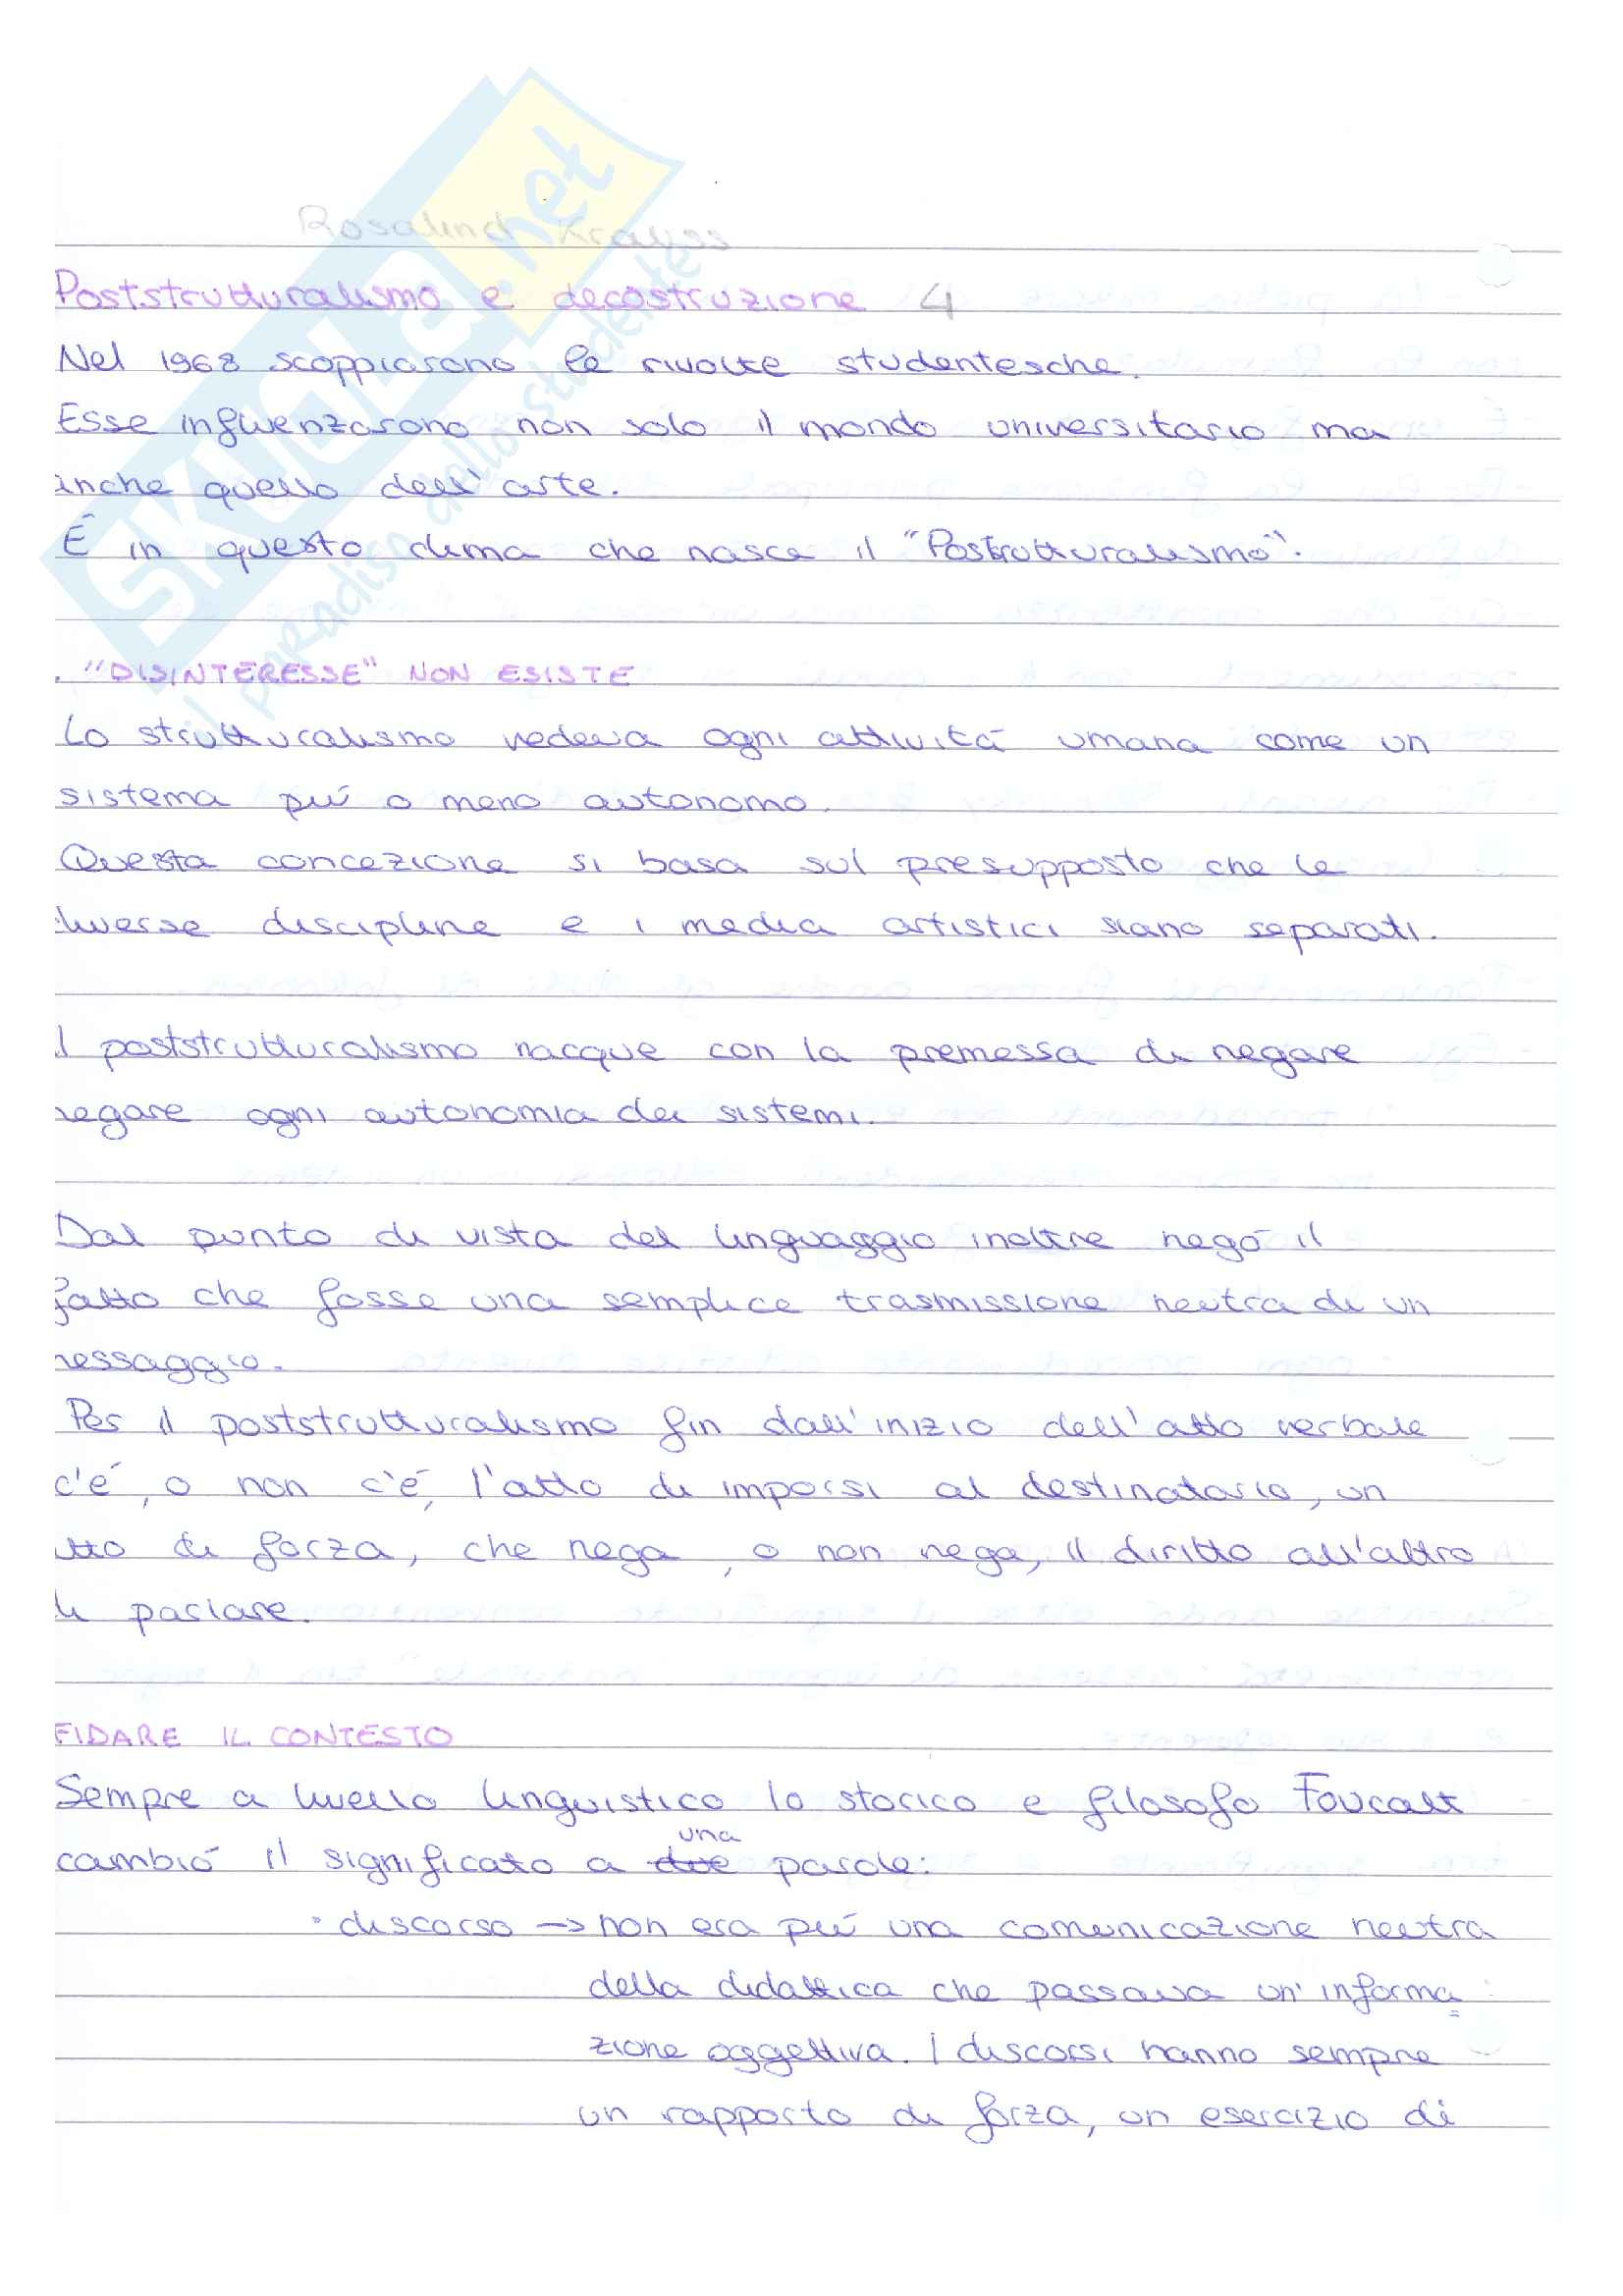 SKUOLA.net
il paradiso dello studente
Rosalind Krauss
Poststrutturalismo e decostruzione 4
Nel 1968 scoppiarono le rivolte studentesche.
Esse influenzarono non solo il mondo universitario ma
anche quello dell'arte.
É in questo clima che nasce il "Postrutturalismo".
. "DISINTERESSE" NON ESISTE
Lo strutturalismo vedeva ogni attivitá umana come un
sistema piú o meno autonomo.
Questa concezione si basa sul presupposto che le
diverse discipline e i media artistici siano separati.
l poststrutturalismo nacque con la premessa di negare
negare ogni autonomia dei sistemi.
Dal punto di vista del linguaggio inoltre negó il
fatto che fosse una semplice trasmissione neutra di un
messaggio.
Per il poststrutturalismo fin dall'inizio dell'atto verbale
c'é, o non c'é, l'atto di imporsi al destinatario, un
atto di forza, che nega, o non nega, il diritto all'altro
di parlare.
FIDARE IL CONTESTO
Sempre a livello linguistico lo storico e filosofo Foucalt
una
cambió il significato a due parole:
• discorso → non era piú una comunicazione neutra
della didattica che passava un'informa
zione oggettiva. I discorsi hanno sempre
un rapporto di forza, un esercizio di